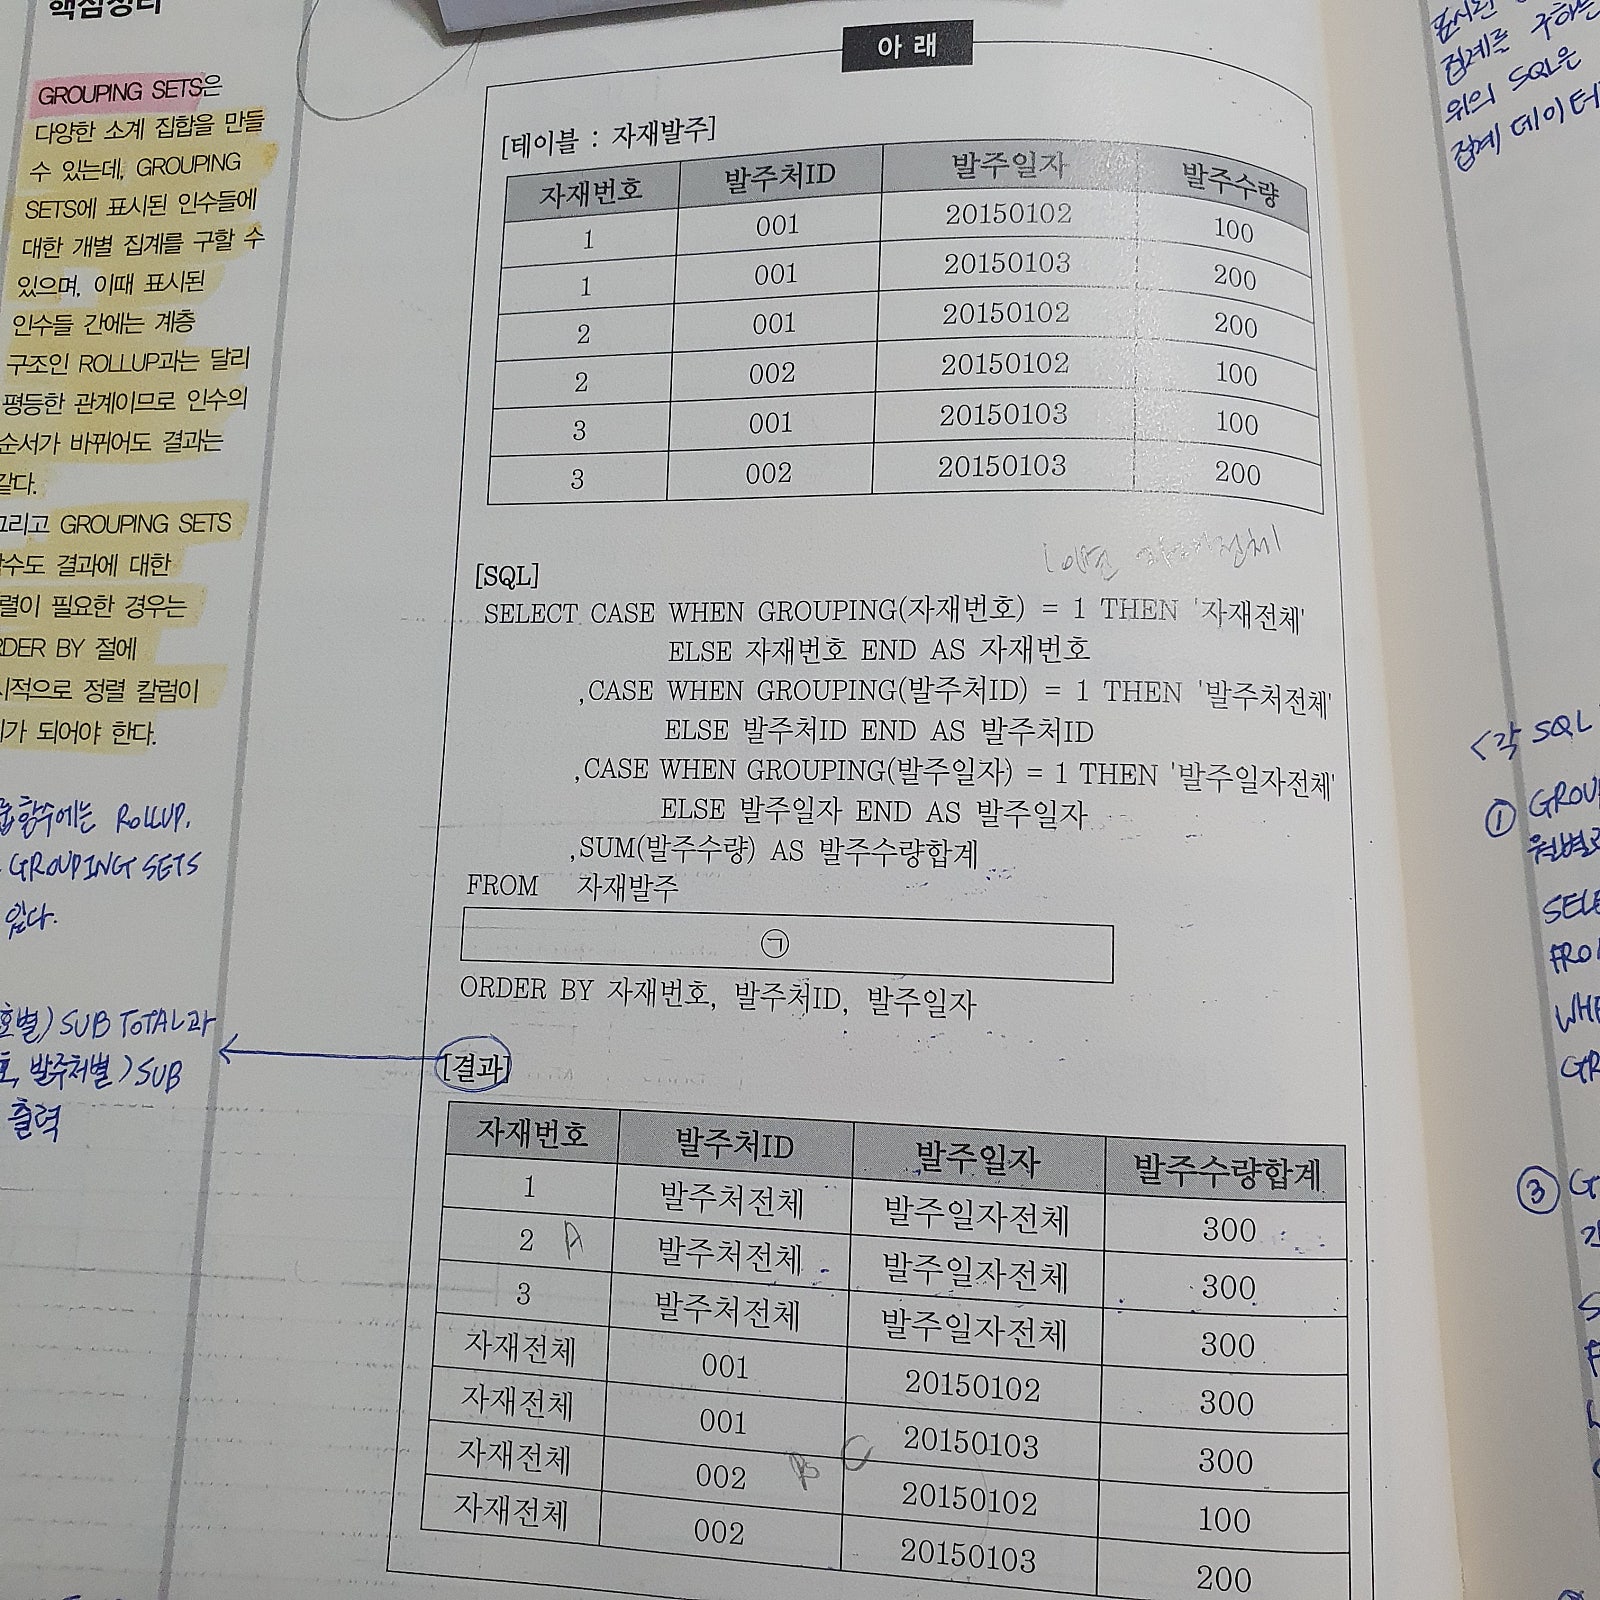 핵심정리
GROUPING SETS은
다양한 소계 집합을 만들
수 있는데, GROUPING
SETS에 표시된 인수들에
대한 개별 집계를 구할 수
있으며, 이때 표시된
인수들 간에는 계층
구조인 ROLLUP과는 달리
평등한 관계이므로 인수의
순서가 바뀌어도 결과는
같다.
그리고 GROUPING SETS
함수도 결과에 대한
정렬이 필요한 경우는
ORDER BY 절에
명시적으로 정렬 칼럼이
표시가 되어야 한다.
함수에는 ROLLUP,
GROUPING SETS
있다.
호별) SUB TOTAL과
호, 발주처별) SUB
출력
아래
[테이블 : 자재발주]
자재번호 발주처ID 발주일자 발주수량
1 001 20150102 100
1 001 20150103 200
2 001 20150102 200
2 002 20150102 100
3 001 20150103 100
3 002 20150103 200
[SQL]
SELECT CASE WHEN GROUPING(자재번호) = 1 THEN '자재전체'
ELSE 자재번호 END AS 자재번호
,CASE WHEN GROUPING(발주처ID) = 1 THEN '발주처전체'
ELSE 발주처ID END AS 발주처ID
,CASE WHEN GROUPING(발주일자) = 1 THEN '발주일자전체'
ELSE 발주일자 END AS 발주일자
,SUM(발주수량) AS 발주수량합계
FROM 자재발주
㉠
ORDER BY 자재번호, 발주처ID, 발주일자
[결과]
자재번호 발주처ID 발주일자 발주수량합계
1 발주처전체 발주일자전체 300
2 A 발주처전체 발주일자전체 300
3 발주처전체 발주일자전체 300
자재전체 001 20150102 300
자재전체 001 20150103 300
자재전체 002 B C 20150102 100
자재전체 002 20150103 200
표시된
집계를 구하는
위의 SQL은
집계 데이터
<각 SQL
① GROU
월별로
SELE
FRO
WHE
GR
③ G